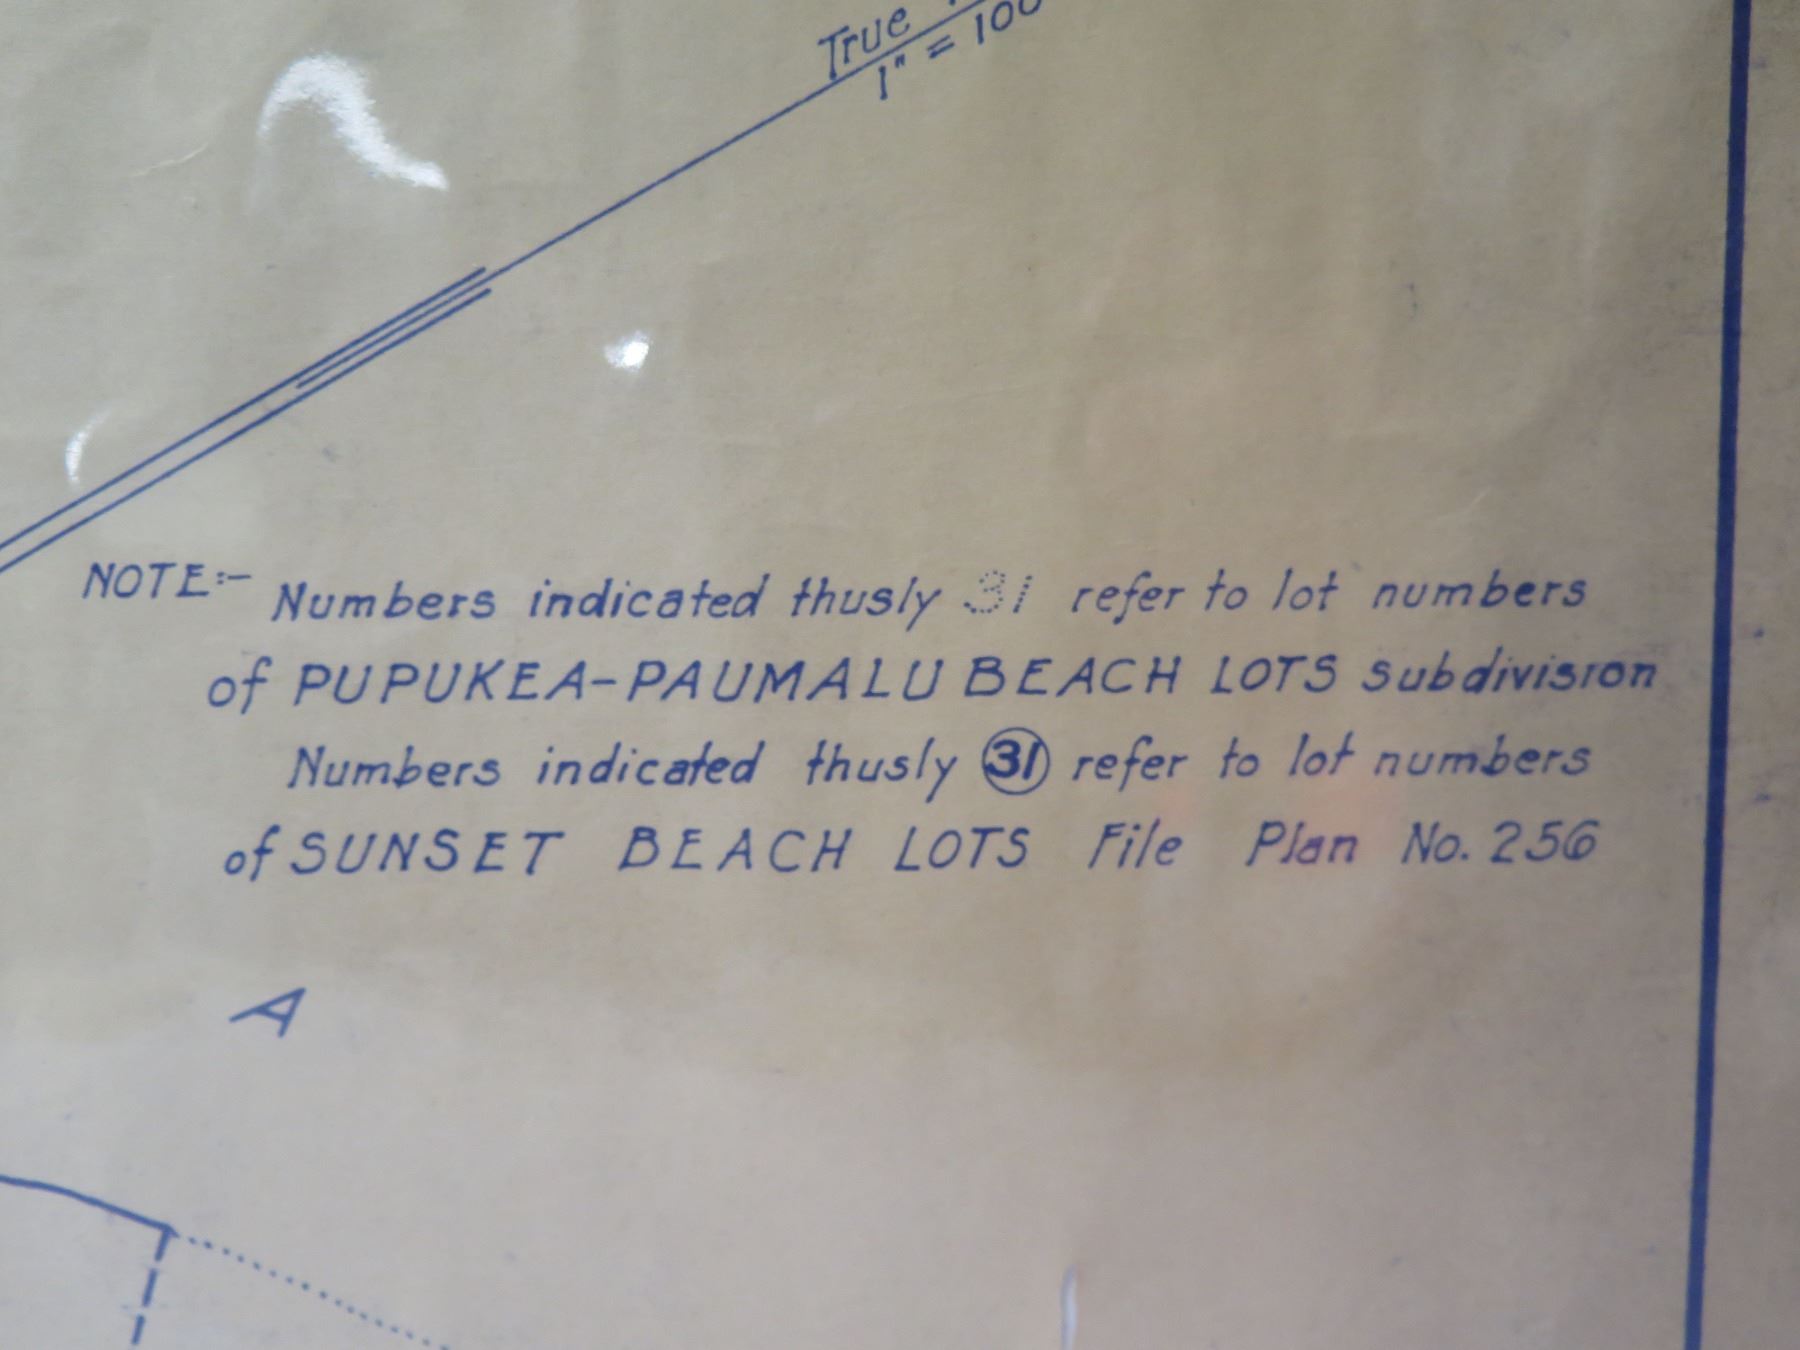 True
1" = 100
NOTE:- Numbers indicated thusly 31 refer to lot numbers
of PUPUKEA-PAUMALU BEACH LOTS subdivision
Numbers indicated thusly 31 refer to lot numbers
of SUNSET BEACH LOTS File Plan No. 256
A